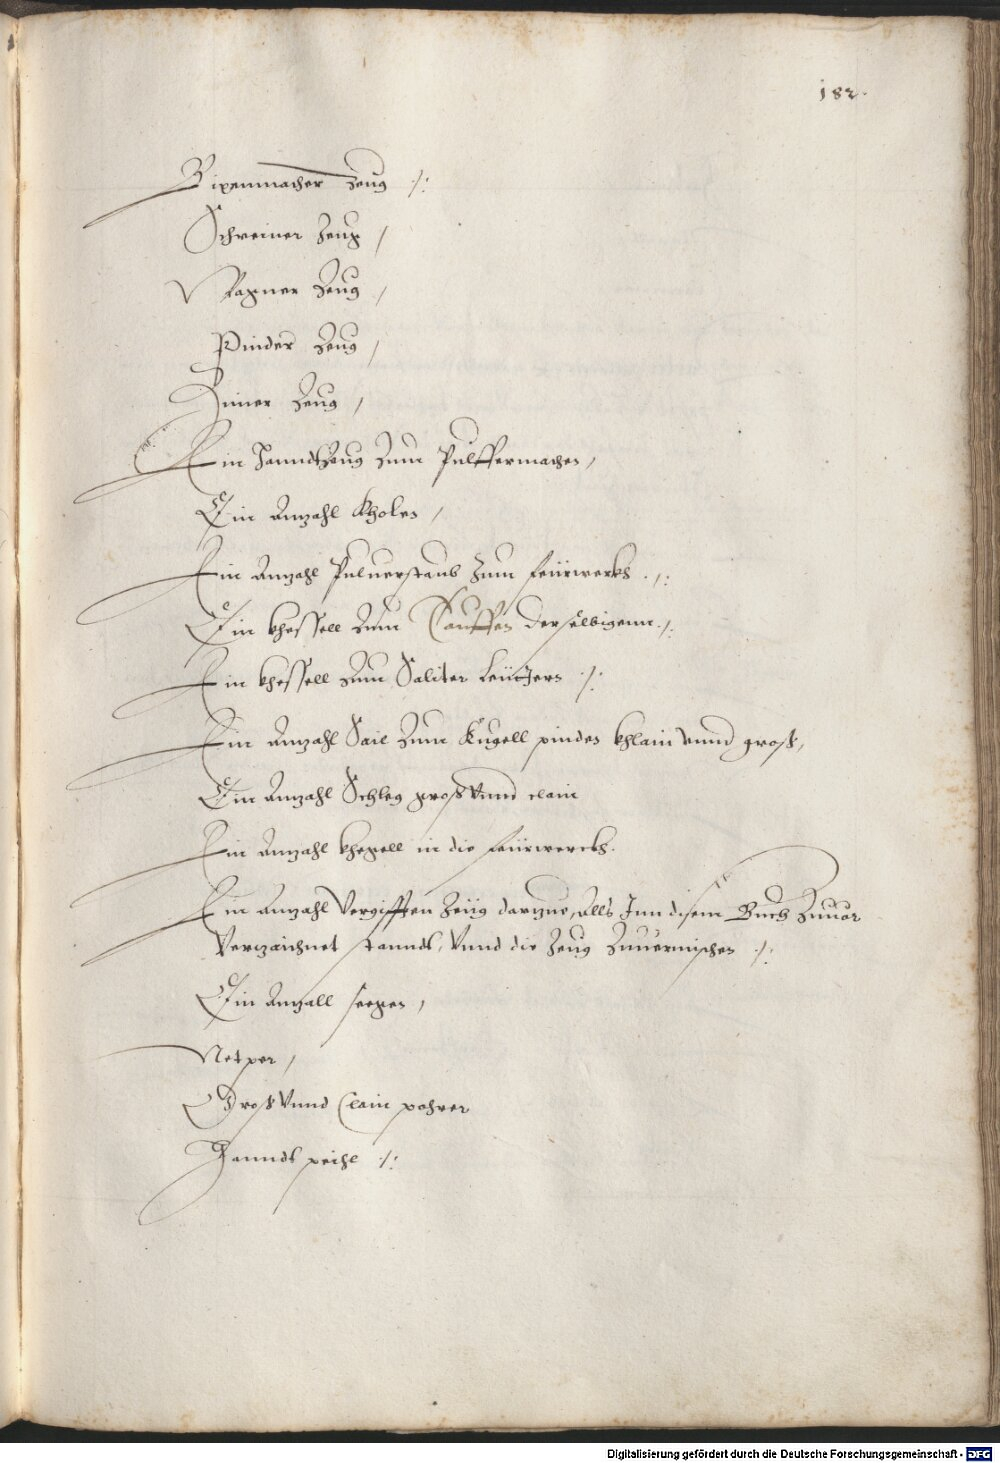 182.
Bixenmacher Zeug ./.
Schreiner Zeug /
Wagner Zeug /
Pinder Zeug /
Zimer Zeug /
Ein Hanndtzeug Zum Pulffermachen /
Ein Anzahl Kholen /
Ein Anzahl Puluerstaub Zum feürwerkh ./.
Ein khessell Zum Tauffen derselbigenn ./.
Ein khessell Zum Saliter Leüttern ./.
Ein Anzahl Sail Zum Kugell pinden khlain vnnd groß /
Ein Anzahl Schleg groß Vnnd clain
Ein Anzahl khegell in die feürwerckh.
Ein Anzahl Vergifften Zeüg darzue, Alls Jnn disem Buch Zuuor
Verzaichnet stanndt, Vnnd die Zeug Zuuermischen ./.
Ein Anzall seegen /
Netper /
Groß Vnnd Clain pohrer
Hanndt peihl ./.
Digitalisierung gefördert durch die Deutsche Forschungsgemeinschaft - DFG